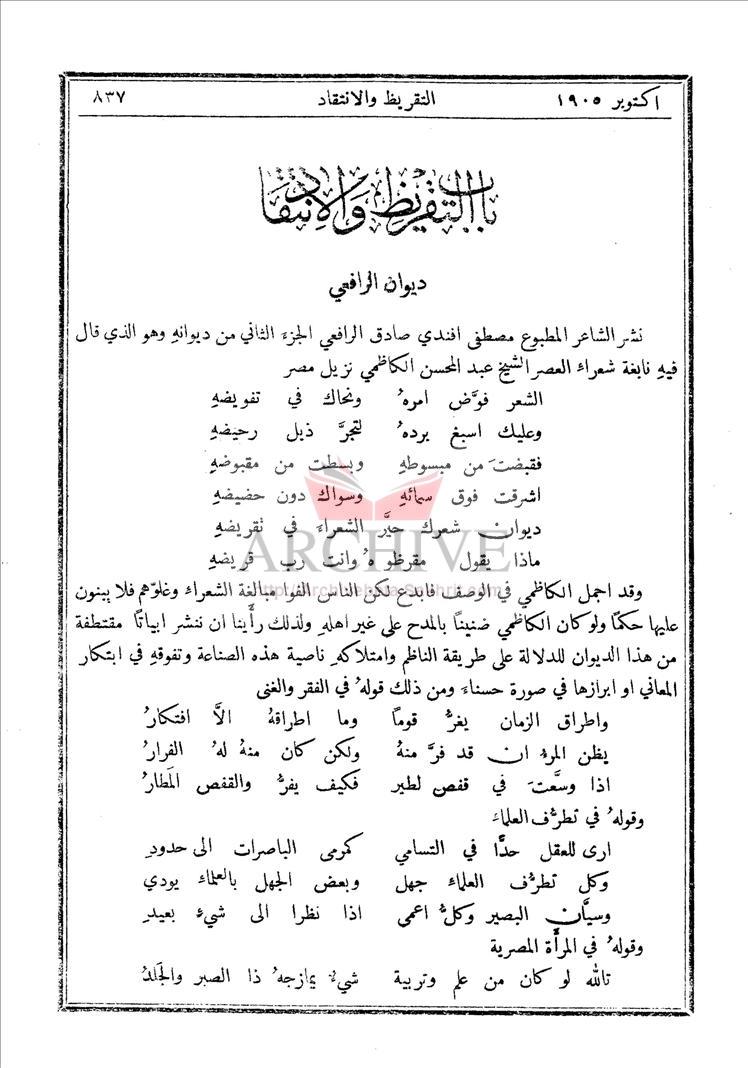 اكتوبر ١٩٠٥ التقريظ والانتقاد ٨٣٧
باب التقريظ والانتقاد
ديوان الرافعي
نشر الشاعر المطبوع مصطفى افندي صادق الرافعي الجزء الثاني من ديوانهِ وهو الذي قال
فيهِ نابغة شعراء العصر الشيخ عبد المحسن الكاظمي نزيل مصر
الشعر فوَّض امرهُ ونحاك في تفويضهِ
وعليك اسبغ بردهُ لتجرَّ ذيل رحيضهِ
فقبضتَ من مبسوطهِ وبسطت من مقبوضهِ
اشرقت فوق سمائهِ وسواك دون حضيضهِ
ديوان شعرك حيَّر الشعراء في تقريضهِ
ماذا يقول مقرظوهُ وانت رب قريضهِ
ARCHIVE
وقد اجمل الكاظمي في الوصف فابدع لكن الناس الفوا مبالغة الشعراء وغلوّهم فلا يبنون
عليها حكمًا ولو كان الكاظمي ضنينًا بالمدح على غير اهلهِ ولذلك رأَينا ان ننشر ابياتًا مقتطفة
من هذا الديوان للدلالة على طريقة الناظم وامتلاكهِ ناصية هذه الصناعة وتفوقهِ في ابتكار
المعاني او ابرازها في صورة حسناء ومن ذلك قولهُ في الفقر والغنى
واطراق الزمان يغرُّ قومًا وما اطراقهُ الاَّ افتكارُ
يظن المرءُ ان قد فرَّ منهُ ولكن كان منهُ لهُ الفرارُ
اذا وسَّعتَ في قفص لطير فكيف يفرُّ والقفص المَطارُ
وقولهُ في تطرُّف العلماء
ارى للعقل حدًّا في التسامي كمرمى الباصرات الى حدودِ
وكل تطرُّف العلماء جهل وبعض الجهل بالعلماء يودي
وسيَّان البصير وكلُّ اعمى اذا نظرا الى شيءٍ بعيدِ
وقولهُ في المرأَة المصرية
تالله لو كان من علم وتربية شيءٌ يمازجهُ ذا الصبر والجَلدُ